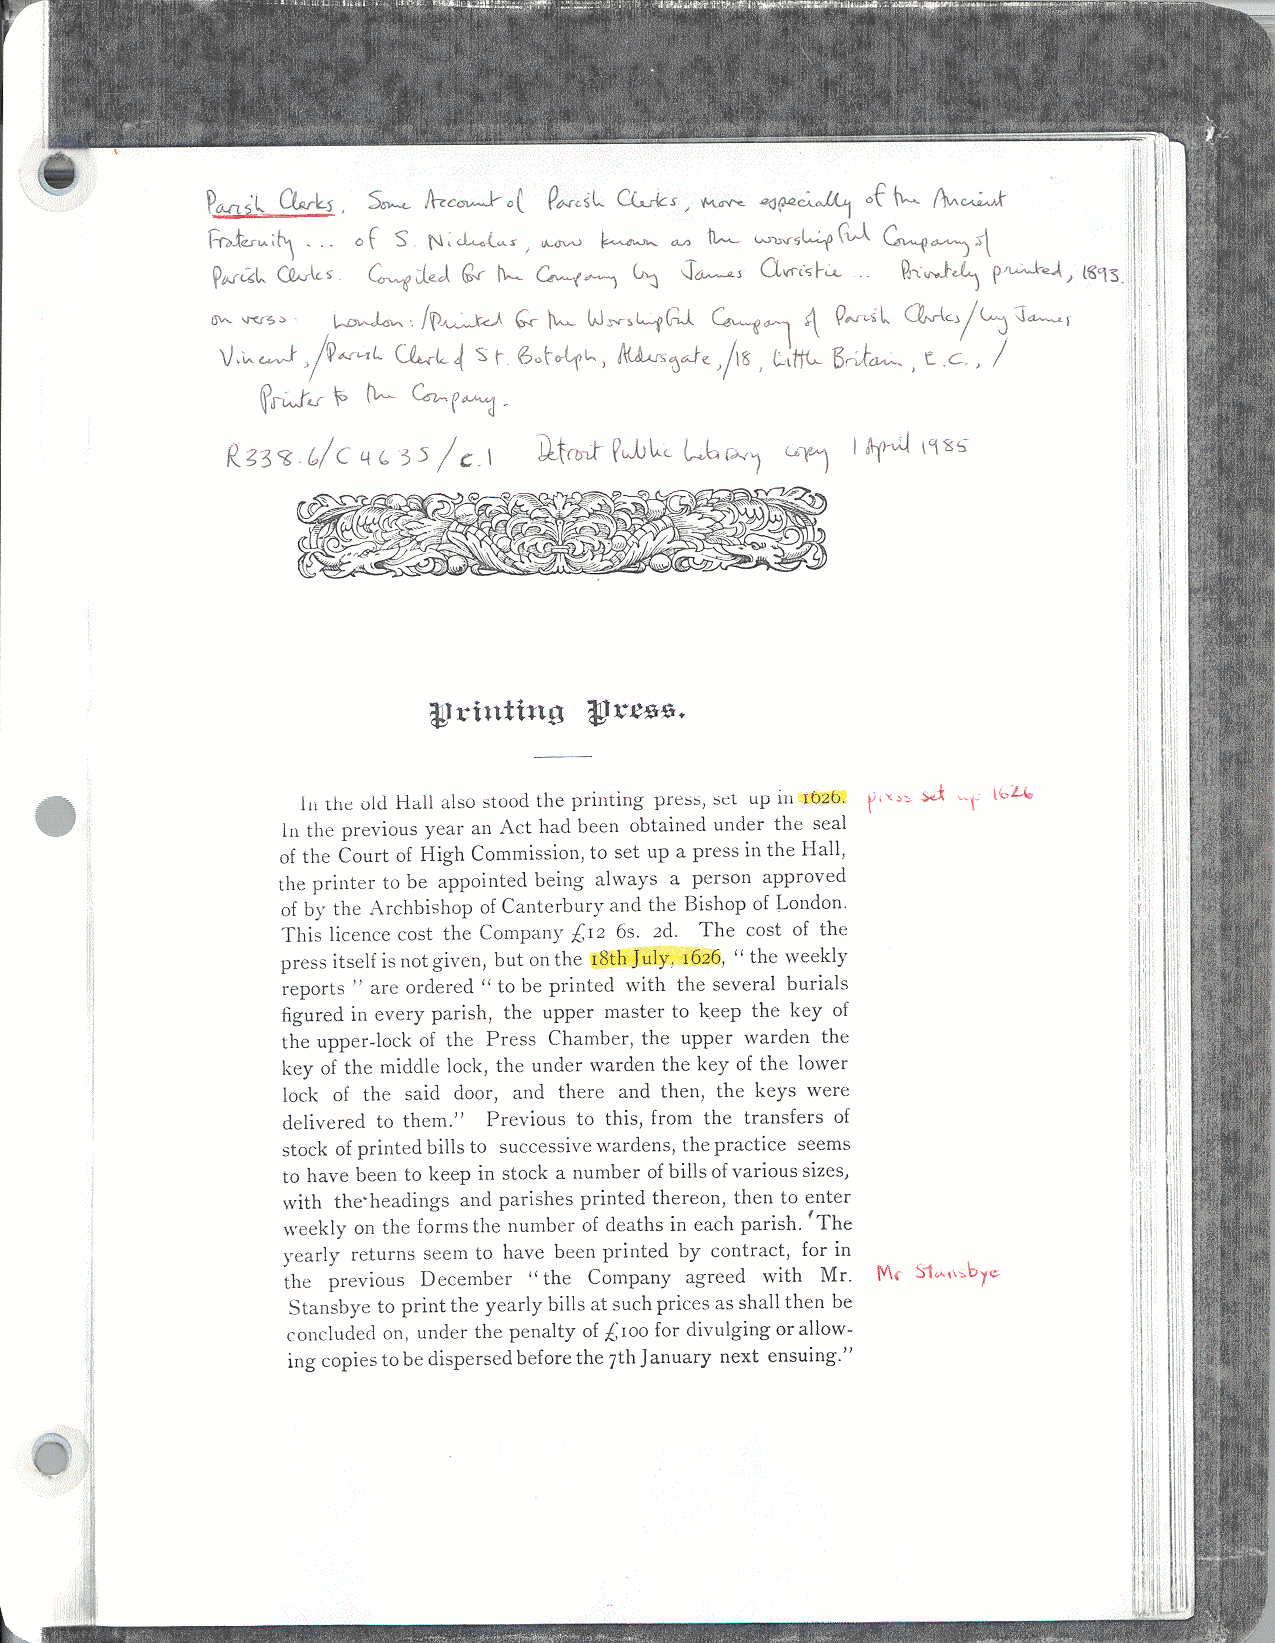 Parish Clerks. Some Account of Parish Clerks, more especially of the Ancient
Fraternity ... of S. Nicholas, now known as the worshipful Company of
Parish Clerks. Compiled for the Company by James Christie ... Privately printed, 1893.
on verso: London: / Printed for the Worshipful Company of Parish Clerks / by James
Vincent, / Parish Clerk of St. Botolph, Aldersgate, / 18, Little Britain, E.C., /
Printer to the Company.
R338.6/C4635/c.1 Detroit Public Library copy 1 April 1985
Printing Press.
In the old Hall also stood the printing press, set up in 1626. press set up 1626
In the previous year an Act had been obtained under the seal
of the Court of High Commission, to set up a press in the Hall,
the printer to be appointed being always a person approved
of by the Archbishop of Canterbury and the Bishop of London.
This licence cost the Company £12 6s. 2d. The cost of the
press itself is not given, but on the 18th July, 1626, “ the weekly
reports ” are ordered “ to be printed with the several burials
figured in every parish, the upper master to keep the key of
the upper-lock of the Press Chamber, the upper warden the
key of the middle lock, the under warden the key of the lower
lock of the said door, and there and then, the keys were
delivered to them.” Previous to this, from the transfers of
stock of printed bills to successive wardens, the practice seems
to have been to keep in stock a number of bills of various sizes,
with the headings and parishes printed thereon, then to enter
weekly on the forms the number of deaths in each parish. The
yearly returns seem to have been printed by contract, for in
the previous December “ the Company agreed with Mr. Mr Stansbye
Stansbye to print the yearly bills at such prices as shall then be
concluded on, under the penalty of £100 for divulging or allow-
ing copies to be dispersed before the 7th January next ensuing.”